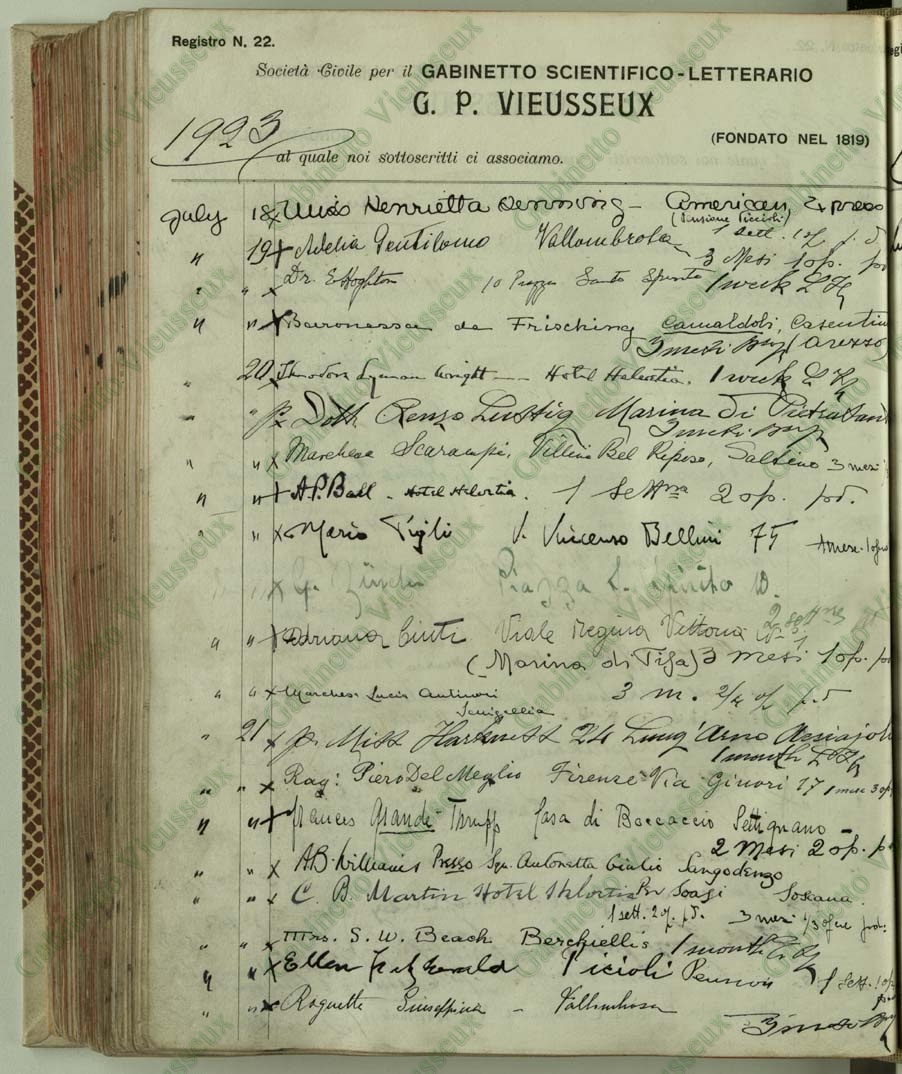 Registro N. 22.
Società Civile per il GABINETTO SCIENTIFICO-LETTERARIO
G. P. VIEUSSEUX
(FONDATO NEL 1819)
1923
al quale noi sottoscritti ci associamo.
July 18 x Miss Henrietta American, 2
(Pensione Piccioli) 1 Sett. 1 op.
" 19 x Adelia Gentilomo Vallombrosa
3 Mesi 1 op.
" " x Dr. E Hoghton 10 Piazza Santo Spirito 1 week
" " x Baronessa de Frisching Camaldoli, Casentino
3 mesi (Arezzo)
" 20 x Theodore Lyman Wright - Hotel Helvetia. 1 week
" " px Dott. Renzo Lustig Marina di Pietrasanta
3 mesi
" " x Marchesa Scarampi, Villino Bel Riposo, Saltino 3 mesi
" " x A. P. Ball - Hotel Helvetia. 1 Settna 2 op. pd.
" " x Mario Pigli V. Vincenzo Bellini 75 1 mese. 1 opera
x G. Piazza S. Spirito 10.
2 settne
" " x Adriana Ciuti Viale Regina Vittoria
(Marina di Pisa) 3 mesi 1 op.
" " x Marchesa Lucia Antinori 3 m. op. pd
Senigallia
" 21 x px Miss Harkness 24 Lung'Arno Acciajoli
1 month
" " x Rag: Piero Del Meglio Firenze Via Ginori 17 1 mese 3 op
" " x Frances Grandi Thrupp Casa di Boccaccio Settignano -
2 Mesi 2 op.
" " x A B. Williams Presso Sgn. Antonetta Giulio Sangodenzo
" " x C. B. Martin Hotel Helvetia Per Soasi Toscana.
1 sett. 2 op. pd. 3 mesi
" " x Mrs. S. W. Beach Berchiellis 1 month
" " x Ellen Fitzgerald Picioli Pension 1 Sett. 1 op
" " x Raguette Giuseppina - Vallombrosa
3 mesi